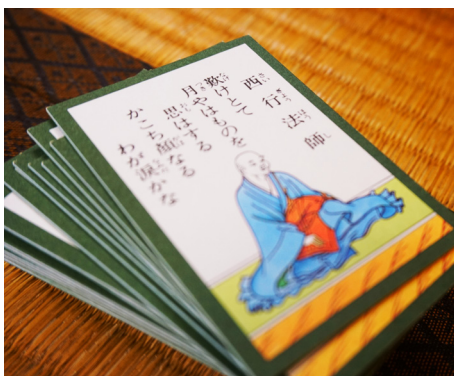 西行法師
歎けとて
月やはものを
思はする
かこち顔なる
わが涙かな